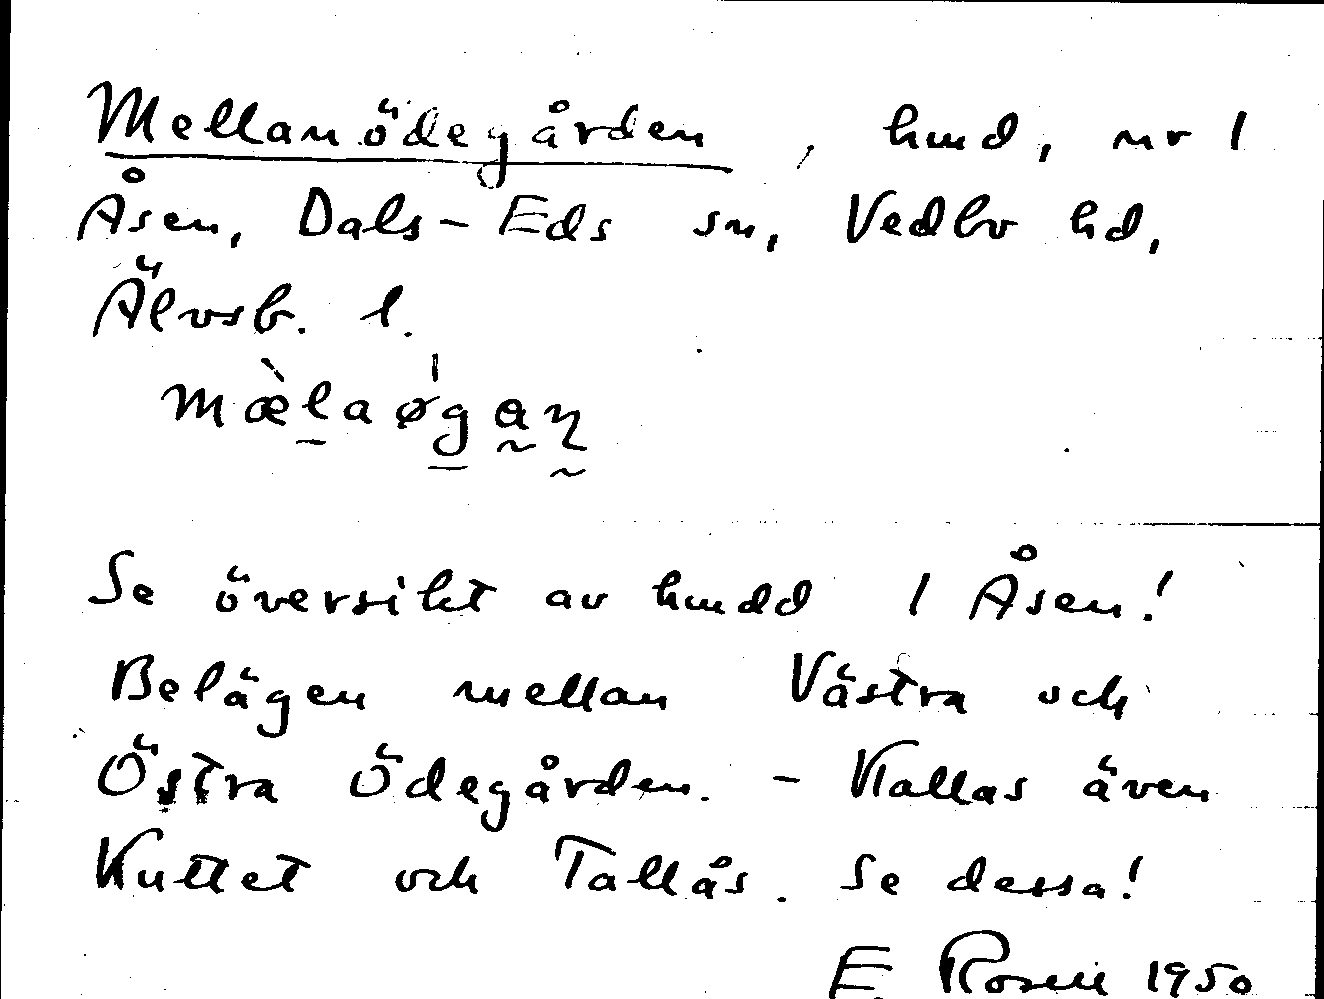 Mellanödegården, hmd, nr 1
Åsen, Dals-Eds sn, Vedbo hd,
Älvsb. l.
mæ̀l̲aǿg̲a̰ŋ̰
Se översikt av hmdd 1 Åsen!
Belägen mellan Västra och
Östra Ödegården. - Kallas även
Kuttet och Tallås. Se dessa!
E Rosell 1950